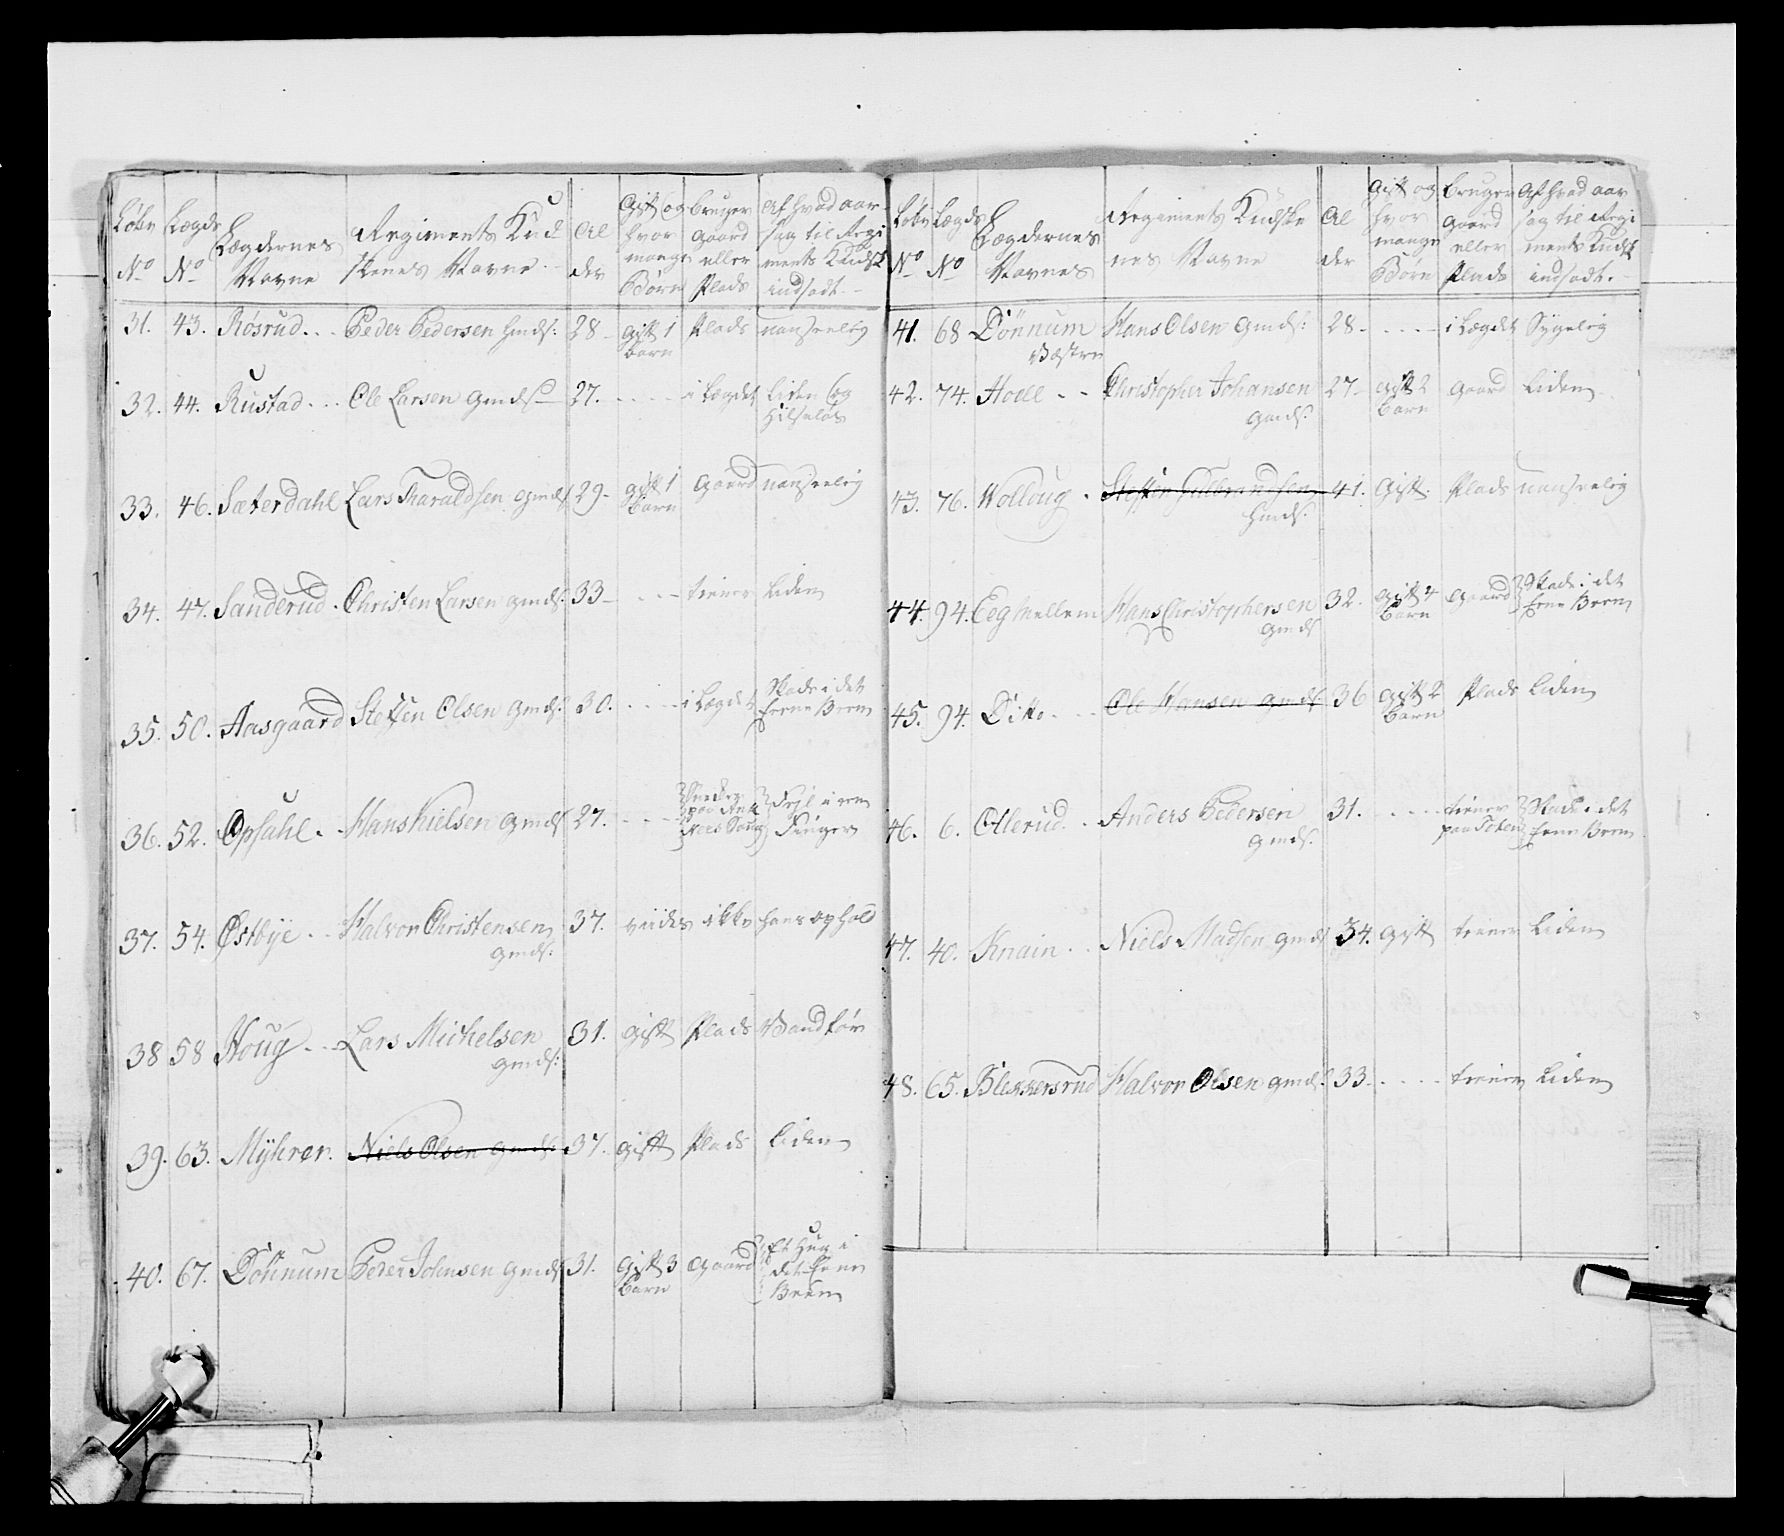 Løbe No | Lægds No | Lægdernes Navne | Regiments Kudskenes Navne | Alder | Gift og hvor mange Børn | bruger gaard eller Plads | Af hvad aarsag til Regiments Kudsk indsadt
31. 43. Røsrud .. Peder Pedersen Hmds: 28 - gift 1 barn Plads uanseelig
32. 44. Rustad ... Ole Larsen Gmds 27. .... i Lægdet liden og Hilseløs
33. 46. Sæterdahl Lars Tharaldsen Gmds 29 - gift 1 barn gaard uanseelig
34. 47. Sanderud . Christen Larsen gmds: 33 - ... tiener Liden
35. 50. Aasgaard Steffen Olsen Gmds: 30. .... i Lægdet Skade i det Eene Been
36. 52. Opsahl . Hans Nielsen Gmds 27. ... Feyl i een Finger
37. 54. Østbye .. Halvor Christensen gmds: 37. viides ikke hans ophold
38 58 Houg ... Lars Michelsen gmds: 31. gift Plads Vandfør
39. 63. Myhrer. Niels Olsen gmds: 37. gift Plads Liden
40. 67. Dönnum Peder Johnsen gmds 31. gift 3 barn gaard Et Hug i det Eene Been
Løbe No | Lægds No | Lægdernes Navne | Regiments Kudskenes Navne | Alder | Gift og hvor mange Børn | bruger gaard eller Plads | Af hvad aarsag til Regiments Kudsk indsadt.
41. 68 Dönnum Vestre Hans Olsen Gmds: 28 - .... i Lægdet Sygelig
42. 74. Hoell -- Christopher Johansen gmds: 27 - gift 2 barn gaard Liden
43. 76. Wolloug . Steffen Gulbrandsen Hmds: 41. Gift. Plads uanseelig
44. 94. Eeg mellem Hans Christophersen gmds 32. gift 4 barn gaard Skade i det Eene Been
45. 94. Ditto ... Ole Hansen gmds: 36 gift 2 barn Plads Liden
46. 6. Ollerud .. Anders Pedersen gmds. 31. .... tiener paa Toten Skade i det Eene Been
47. 40. Knain .. Niels Madsen gmds 34. gift tiener Liden
48. 65. Blekkersrud Halvor Olsen gmds: 33 .... tiener Liden